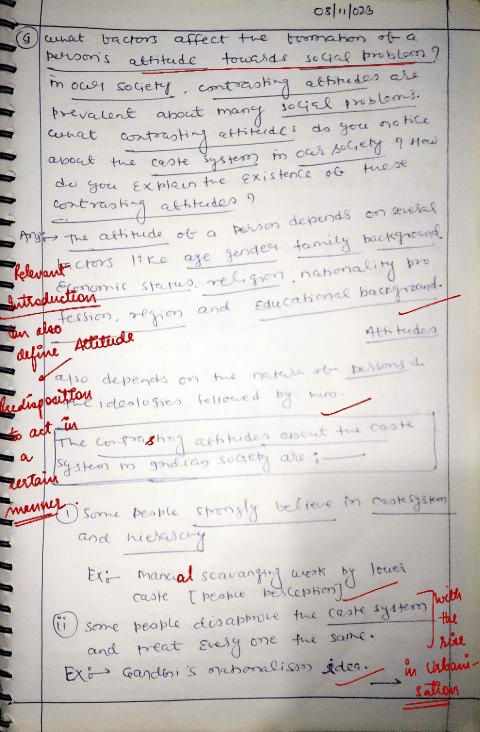 03/11/023
Q what factors affect the formation of a
person's attitude towards social problem?
in our society, contrasting attitudes are
prevalent about many social problems.
what contrasting attitudes do you notice
about the caste system in our society? How
do you explain the existence of these
contrasting attitudes?
Ans:→ The attitude of a person depends on several
factors like age gender, family background
Economic status, religion, nationality pro
fession, region and Educational background.
Attitudes
also depends on the nature of persons &
the ideologies followed by him.
The contrasting attitudes about the caste
system in indian society are :—
(i) Some people strongly believe in caste system
and hierarchy
Ex:- manual scavanging work by lower
caste [people perception]
(ii) Some people disapprove the caste system
and treat every one the same.
Ex:→ Gandhi's nationalism idea.
Relevant
Introduction
can also
define Attitude
Predisposition
to act in
a
certain
manner.
with
the
rise
in Urbani-
sation